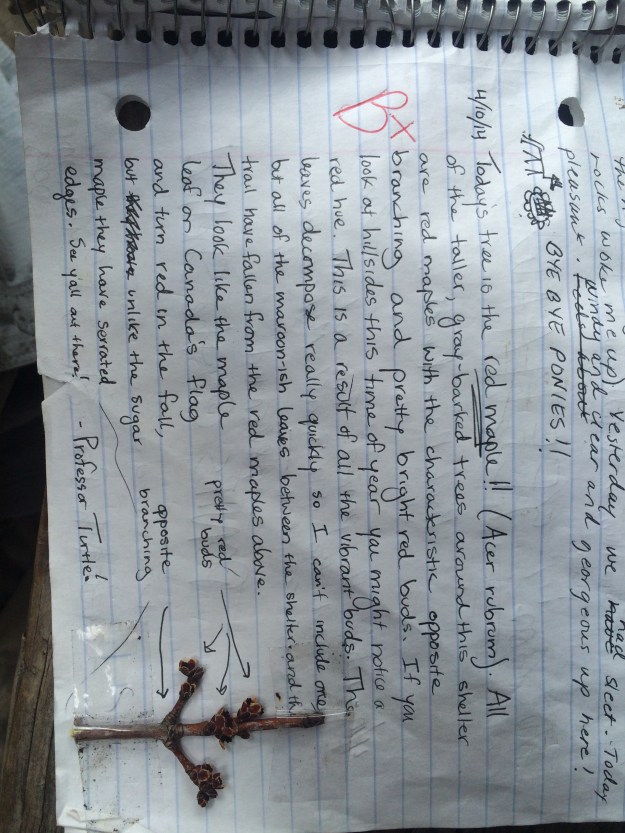 the
rocks woke me up). Yesterday we had sleet. Today
windy and clear and georgeous up here!
pleasant.
BYE BYE PONIES!!
4/10/14 Today's tree is the red maple!! (Acer rubrum). All
of the taller, gray-barked trees around this shelter
are red maples with the characteristic opposite
branching and pretty bright red buds. If you
B+
look at hillsides this time of year you might notice a
red hue. This is a result of all the vibrant buds. The
leaves decompose really quickly so I can't include one
but all of the maroon-ish leaves between the shelter and th
trail have fallen from the red maples above.
They look like the maple
leaf on Canada's flag
and turn red in the fall,
but unlike the sugar
maple they have serrated
edges. See y'all out there!
- Professor Turtle
pretty red
buds
opposite
branching